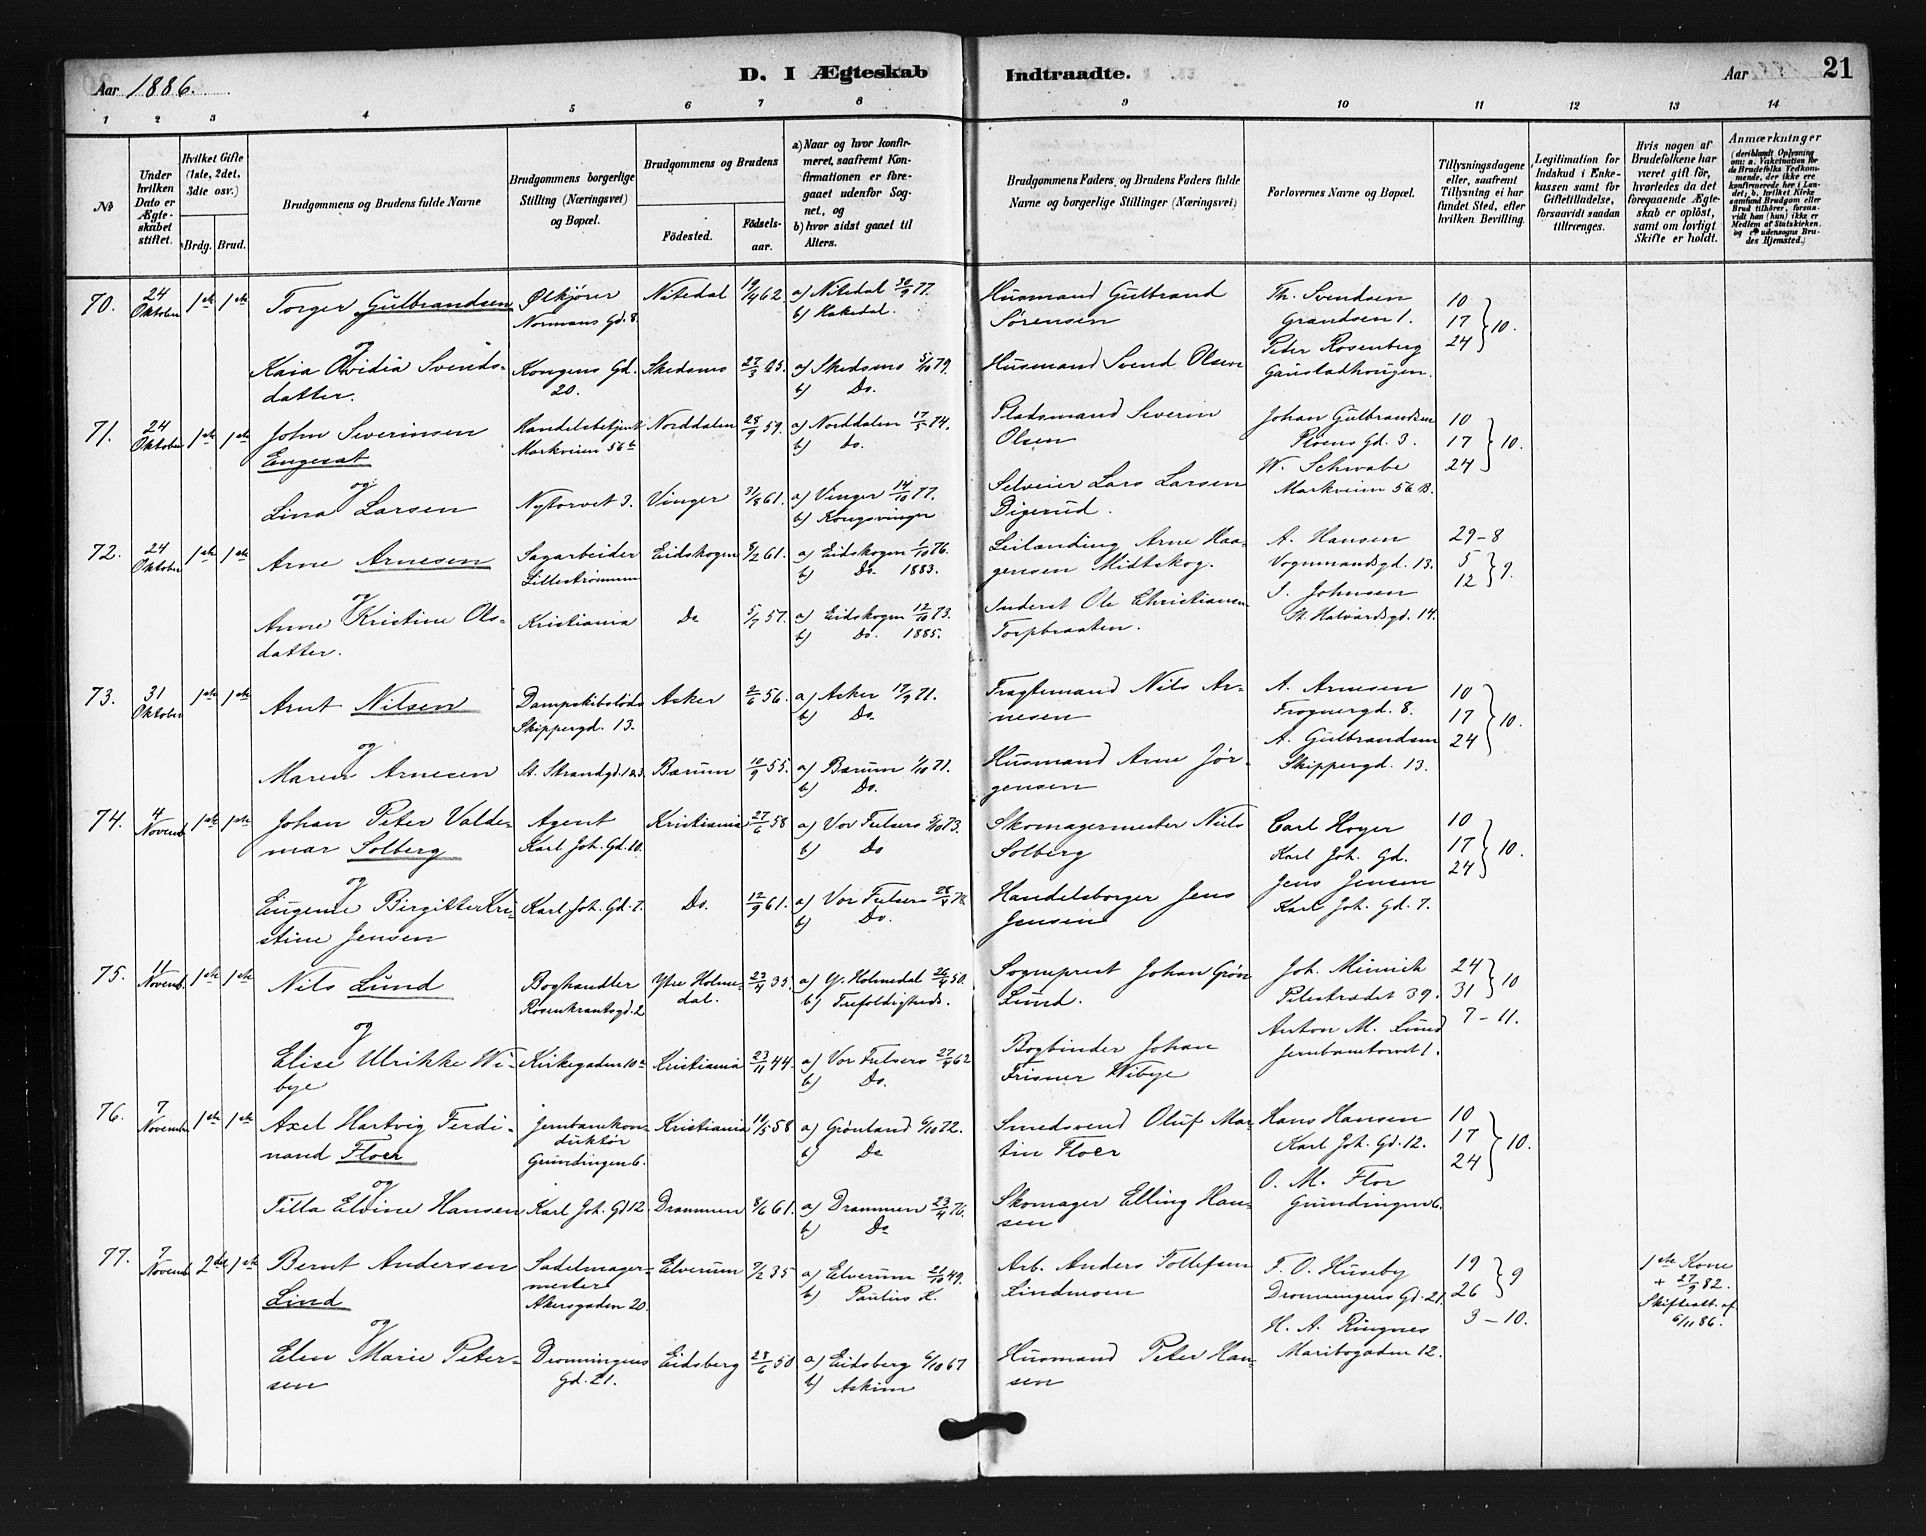 Aar 1886.
D. I Ægteskab Indtraadte.
Aar
21
1 2 3 4 5 6 7 8 9 10 11 12 13 14
№
Under hvilken Dato er Ægteskabet stiftet.
Hvilket Gifte (1ste, 2det, 3die osv.)
Brdg. Brud.
Brudgommens og Brudens fulde Navne
Brudgommens borgerlige Stilling (Næringsvei) og Bopæl.
Brudgommens og Brudens
Födested.
Födselsaar.
a) Naar og hvor konfirmeret, saafremt Konfirmationen er foregaaet udenfor Sognet, og
b) hvor sidst gaaet til Alters.
Brudgommens Faders og Brudens Faders fulde Navne og borgerlige Stillinger (Næringsvei)
Forlovernes Navne og Bopæl.
Tillysningsdagene eller, saafremt Tillysning ei har fundet Sted, efter hvilken Bevilling.
Legitimation for Indskud i Enkekassen samt for Giftetilladelse, forsaavidt saadan tiltrænges.
Hvis nogen af Brudefolkene har været gift før, hvorledes da det foregaaende Ægteskab er opløst, samt om lovligt Skifte er holdt.
Anmærkninger
(deriblandt Oplysning om: a. Vakcination for de Brudefolks Vedkommende, der ikke ere konfirmerede her i Landet; b. hvilket Kirkesamfund Brudgom eller Brud tilhører, forsaavidt han (hun) ikke er Medlem af Statskirken. og c. udensogns Brudes Hjemsted.)
70. 24 Oktober 1ste 1ste Torger Gulbrandsen Ølkjører Normans Gd. 8. Nitedal 19/4 62. a) Nitedal 30/9 77. b) Hakedal. Husmand Gulbrand Sørensen Th. Svendsen Grændsen 1. 10 17 24 } 10.
og
Kaia Ovidia Svendsdatter. Kongens Gd. 20. Skedsmo 27/3 65. a) Skedsmo 5/10 79. b) Do. Husmand Svend Olsen Peter Rosenberg Gaustadhougen.
71. 24 Oktober 1ste 1ste John Severinsen Engeset Handelsbetjent Markveien 56b Norddalen 28/9 59. a) Norddalen 17/5 74. b) do. Pladsmand Severin Olsen Johan Gulbrandsen Ploens Gd. 3. 10 17 24 } 10.
og
Lina Larsen Nytorvet 3. Vinger 31/8 61. a) Vinger 14/10 77. b) Kongsvinger Selveier Lars Larsen Digerud. W. Schwabe Markveien 56 B.
72. 24 Oktober 1ste 1ste Arne Arnesen Sagarbeider Lillestrømmen Eidskogen 8/2 61. a) Eidskogen 1/10 76. b) Do. 1883. Leilænding Arne Haagensen Midtskog. A. Hansen Vognmandsgd. 13. 29-8 5 12 } 9.
og
Anne Kristine Olsdatter. Kristiania Do 5/7 57. a) Eidskogen 12/10 73. b) Do. 1885. Inderst Ole Christiansen Torpbraaten. I. Johnsen St. Halvardsgd. 14.
73. 31 Oktober 1ste 1ste Arnt Nilsen Dampskibslods Skippergd. 13. Asker 2/6 56. a) Asker 17/9 71. b) Do. Fragtemand Nils Arnesen A. Arnesen Frognergd. 8. 10 17 24 } 10.
og
Maren Arnesen St. Strandgd. 123. Bærum 10/9 55. a) Bærum 1/10 71. b) Do. Husmand Arne Jørgensen A. Gulbrandsen Skippergd. 13.
74. 4 Novemb. 1ste 1ste Johan Peter Valdemar Solberg Agent Karl Joh. Gd. 10. Kristiania 27/6 58 a) Vor Frelsers 5/10 73. b) Do Skomagermester Niels Solberg Carl Hoyer Karl Joh. Gd. 10 17 24 } 10.
og
Eugenie Birgitte Kristine Jensen Karl Joh. Gd. 7. Do. 12/9 61. a) Vor Frelsers 28/4 78. b) Do. Handelsborger Jens Jensen Jens Jensen Karl Joh. Gd. 7.
75. 11 Novemb. 1ste 1ste Nils Lund Boghandler Rosenkrantsgd. 2 Ytre Holmedal. 23/4 35. a) Y. Holmedal 26/4 50. b) Trefoldigheds. Sogneprest Johan Grøn Lund. Joh. Minnich Pilestrædet 39. 24 31 } 10 7-11.
og
Elise Ulrikke Wibye Kirkegaden 10a Kristiania 23/11 44. a) Vor Frelsers 27/4 62 b) Do. Bogbinder Johan Frisner Wibye Anton M. Lund Jernbanetorvet 1.
76. 7 November 1ste 1ste Axel Hartvig Ferdinand Floer Jernbanekonduktør Grundingen 6. Kristiania 19/5 58 a) Grønland 6/10 72. b) Do Smedsvend Oluf Martin Floer Hans Hansen Karl Joh. Gd. 12. 10 17 24 } 10.
og
Tilla Elvine Hansen Karl Joh. Gd 12. Drammen 8/6 61. a) Drammen 23/4 76. b) Do Skomager Elling Hansen O. M. Flor Grundingen 6.
77. 7 Novemb. 2det 1ste Bernt Andersen Lind Sadelmagermester Akersgaden 20. Elverum 7/2 35 a) Elverum 21/10 49. b) Paulus K. Arb. Anders Tollefsen Lindmoen F. O. Huseby Dronningens Gd. 21. 19 26 } 9 3-10. 1ste Kone + 27/9 82. Skifteatt. af 6/11 86.
og
Elen Marie Petersen Dronningens Gd. 21. Eidsberg 28/6 50 a) Eidsberg 6/10 67 b) Askim Husmand Peter Hansen H. A. Ringnes Maribogaden 12.